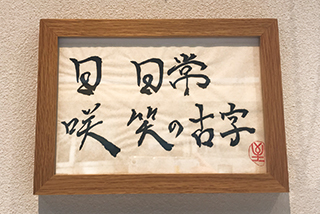 日 日常
咲 笑の古字